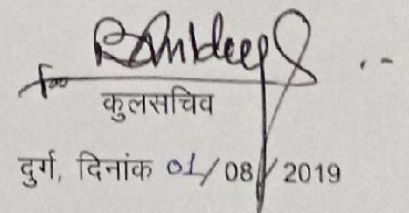 for
कुलसचिव
दुर्ग, दिनांक 01/08/2019